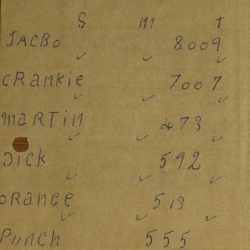 S m t
JACBO 8009
CRANKIE 7007
MARTIN 473
DICK 592
ORANGE 513
PUNCH 555